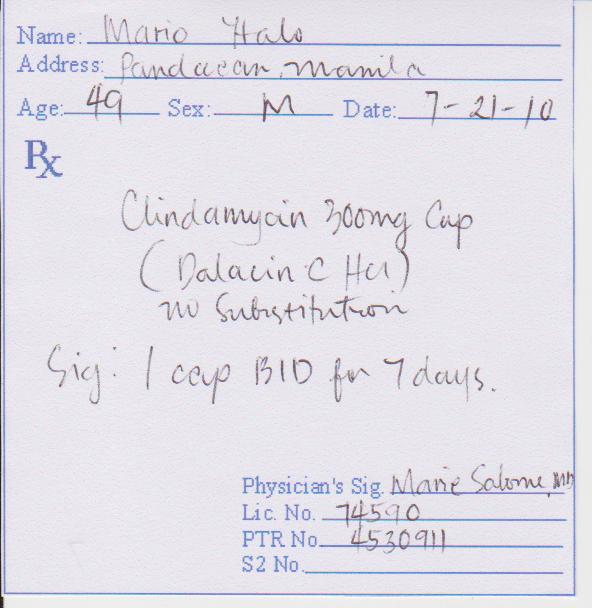 Name: Mario Halo
Address: Pandacan, Manila
Age: 49 Sex: M Date: 7-21-10
Rx
Clindamycin 300mg Cap
(Dalacin C Hcl)
no Substitution
Sig: 1 cap BID for 7 days.
Physician's Sig. Marie Salome, MD
Lic. No. 74590
PTR No. 4530911
S2 No.